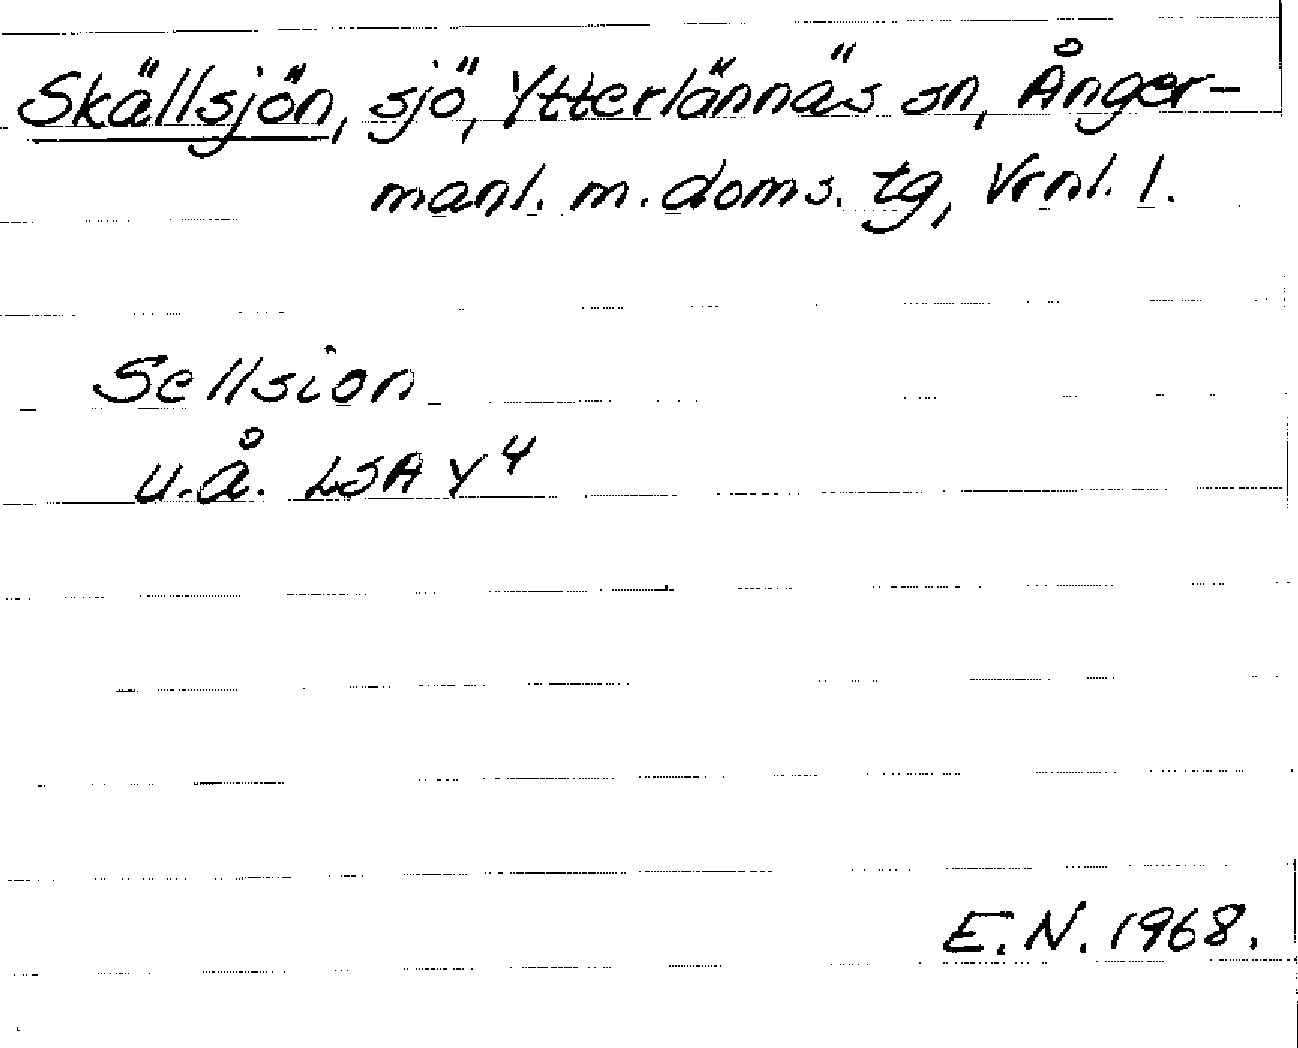 Skällsjön, sjö, Ytterlännäs sn, Ånger-
manl. m. doms. tg, Vrnl. l.
Sellsion
u.å. LSA Y4
E.N. 1968.